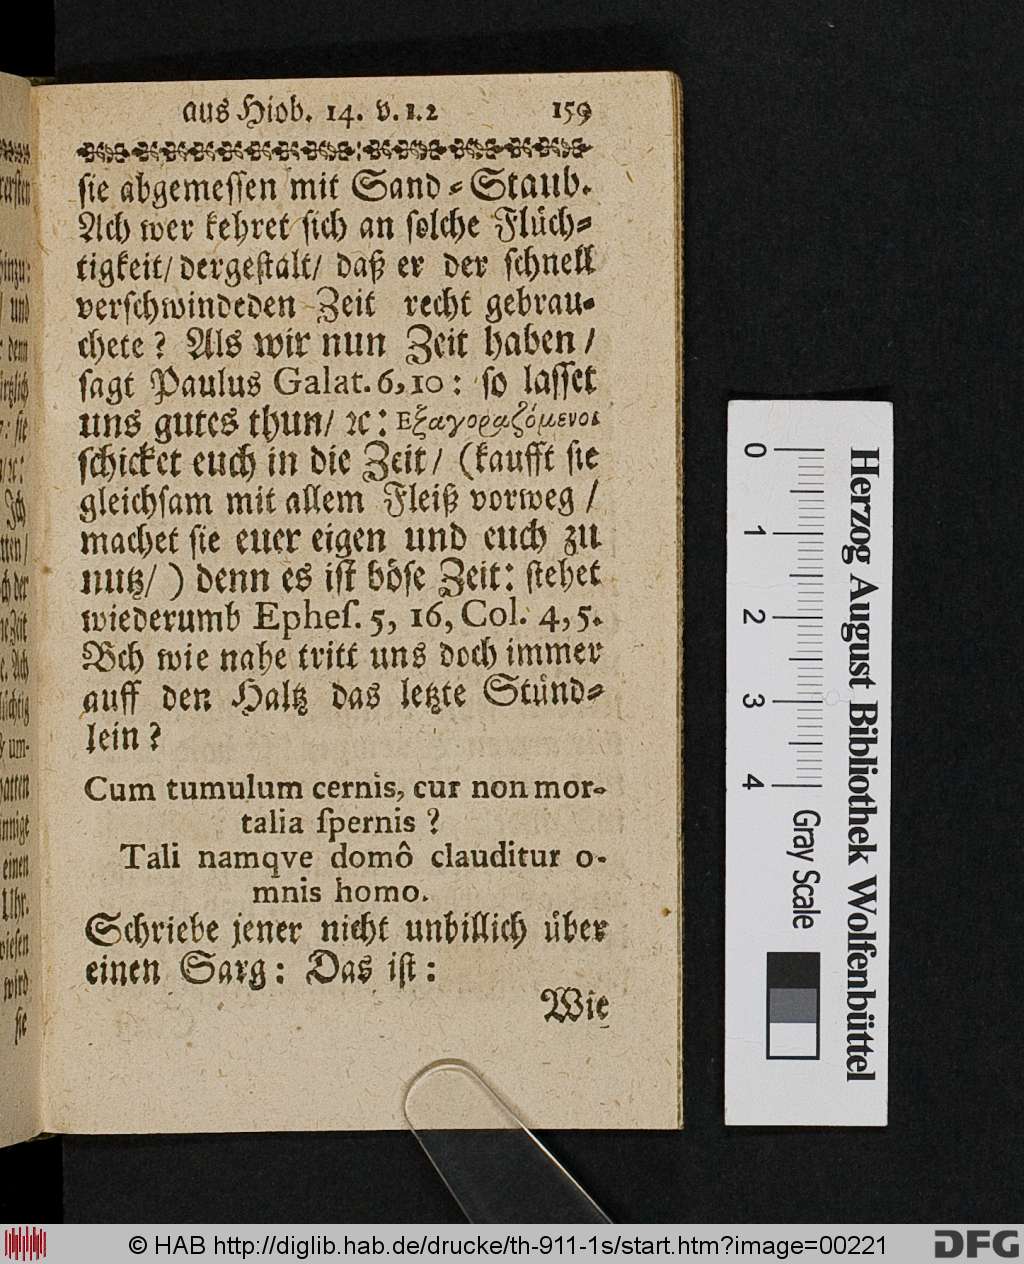 aus Hiob. 14. v. 1.2 159
sie abgemessen mit Sand-Staub.
Ach wer kehret sich an solche Flüch-
tigkeit/ dergestalt/ daß er der schnell
verschwindeden Zeit recht gebrau-
chete? Als wir nun Zeit haben/
sagt Paulus Galat. 6, 10: so lasset
uns gutes thun/ ꝛc: Εξαγοραζόμενοι
schicket euch in die Zeit/ (kaufft sie
gleichsam mit allem Fleiß vorweg/
machet sie euer eigen und euch zu
nutz/) denn es ist böse Zeit: stehet
wiederumb Ephes. 5, 16, Col. 4, 5.
Ach wie nahe tritt uns doch immer
auff den Haltz das letzte Stünd-
lein?
Cum tumulum cernis, cur non mor-
talia spernis?
Tali namqve domô clauditur o-
mnis homo.
Schriebe jener nicht unbillich über
einen Sarg: Das ist:
Wie
0 1 2 3 4
Herzog August Bibliothek Wolfenbüttel
Gray Scale
© HAB http://diglib.hab.de/drucke/th-911-1s/start.htm?image=00221
DFG